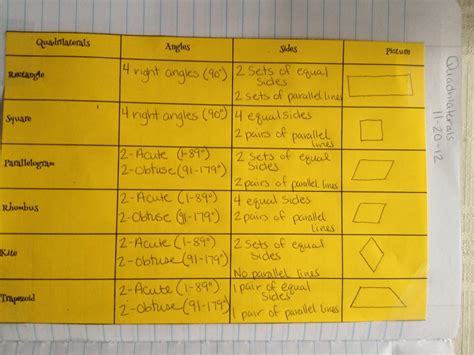 Quadrilaterals Angles Sides Picture
Rectangle
4 right angles (90°)
2 Sets of equal
sides
2 sets of parallel lines
Square
4 right angles (90°)
4 equal sides
2 pairs of parallel
lines
Parallelogram
2-Acute (1-89°)
2-Obtuse (91-179°)
2 sets of equal
sides
2 pairs of parallel
lines
Rhombus
2-Acute (1-89°)
2-Obtuse (91-179°)
4 equal sides
2 pairs of parallel
lines
Kite
2-Acute (1-89°)
2-Obtuse (91-179°)
2 Sets of equal
sides
No parallel lines
Trapezoid
2-Acute (1-89°)
2-Obtuse (91-179°)
1 pair of equal
sides
1 pair of parallel lines
Quadrilaterals
11-20-12